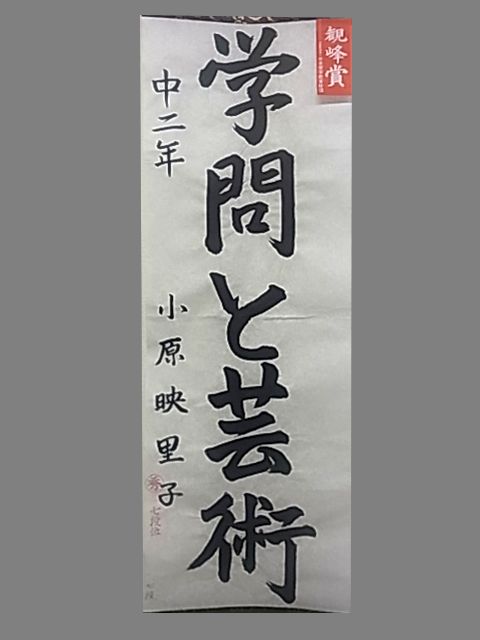 観峰賞
学問と芸術
中二年 小原映里子
秀
七段位
七段